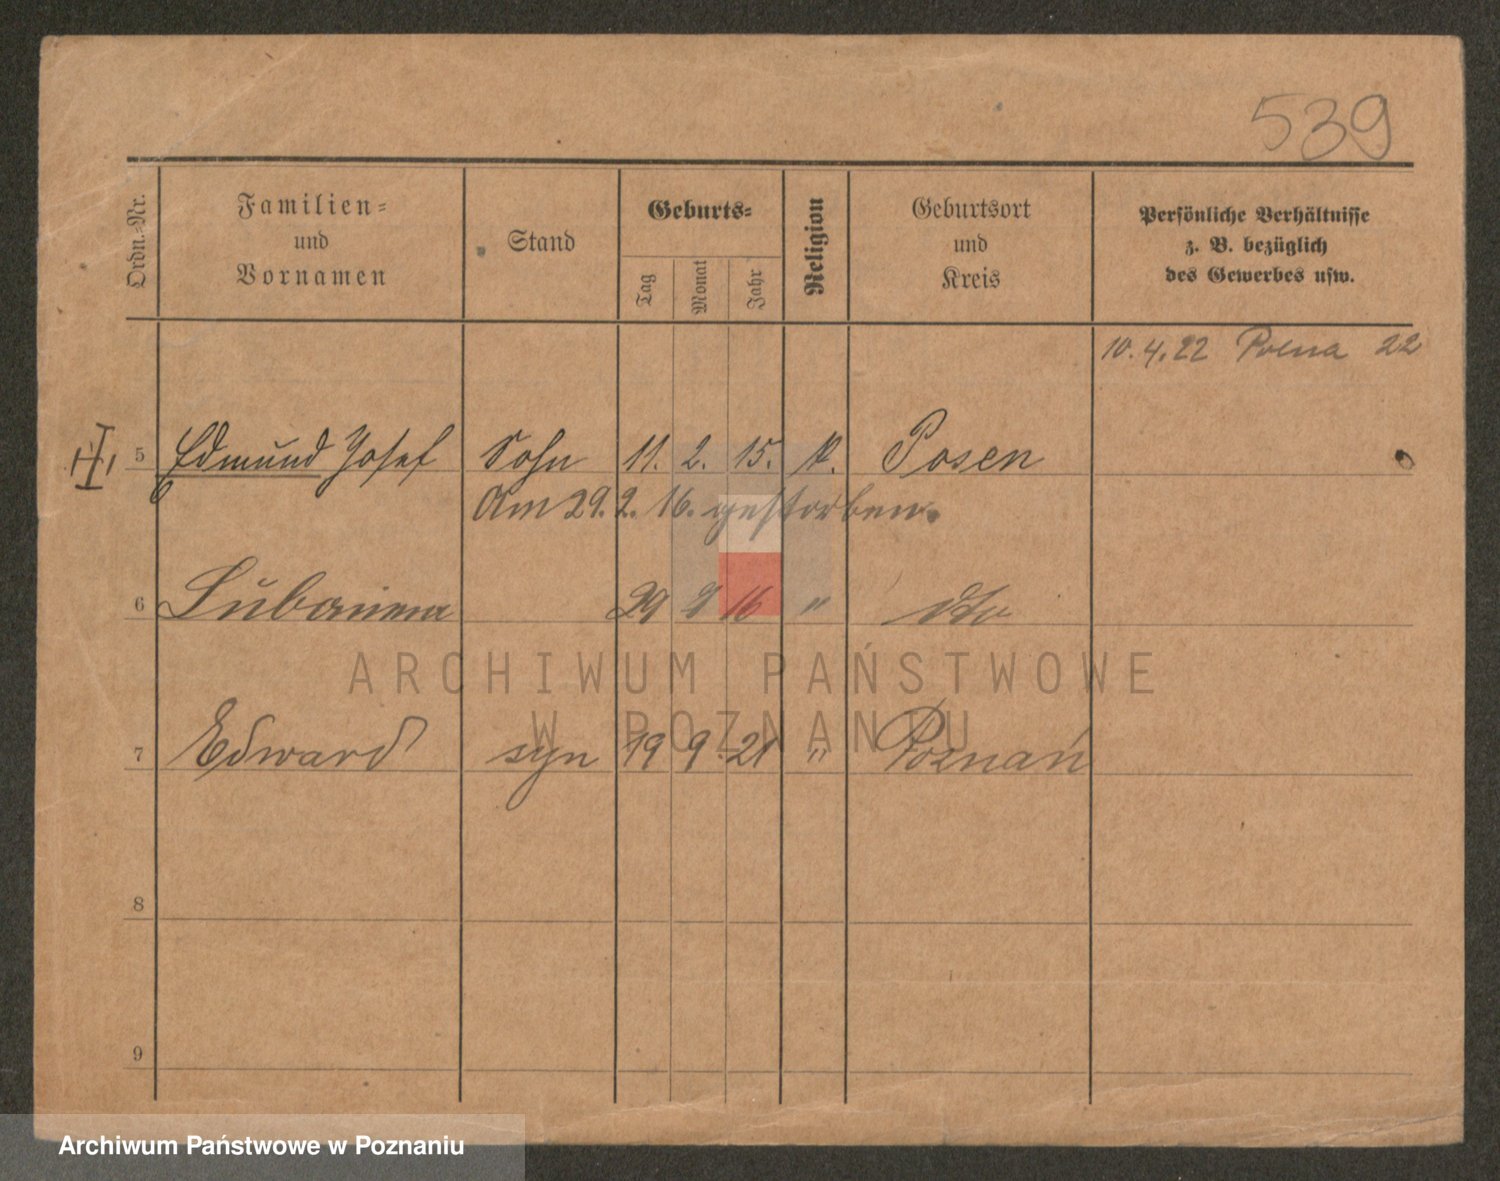 539
Ordn.-Nr.
Familien-
und
Vornamen
Stand
Geburts-
Tag
Monat
Jahr
Religion
Geburtsort
und
Kreis
Persönliche Verhältnisse
z. B. bezüglich
des Gewerbes usw.
10.4.22 22
5 Edmund Josef Sohn 11. 2. 15. k. Posen
Am 29. 2. 16. gestorben.
6 29 16 " dto
ARCHIWUM PAŃSTWOWE
W POZNANIU
7 Edward syn 19 9. 21 " Poznań
8
9
Archiwum Państwowe w Poznaniu